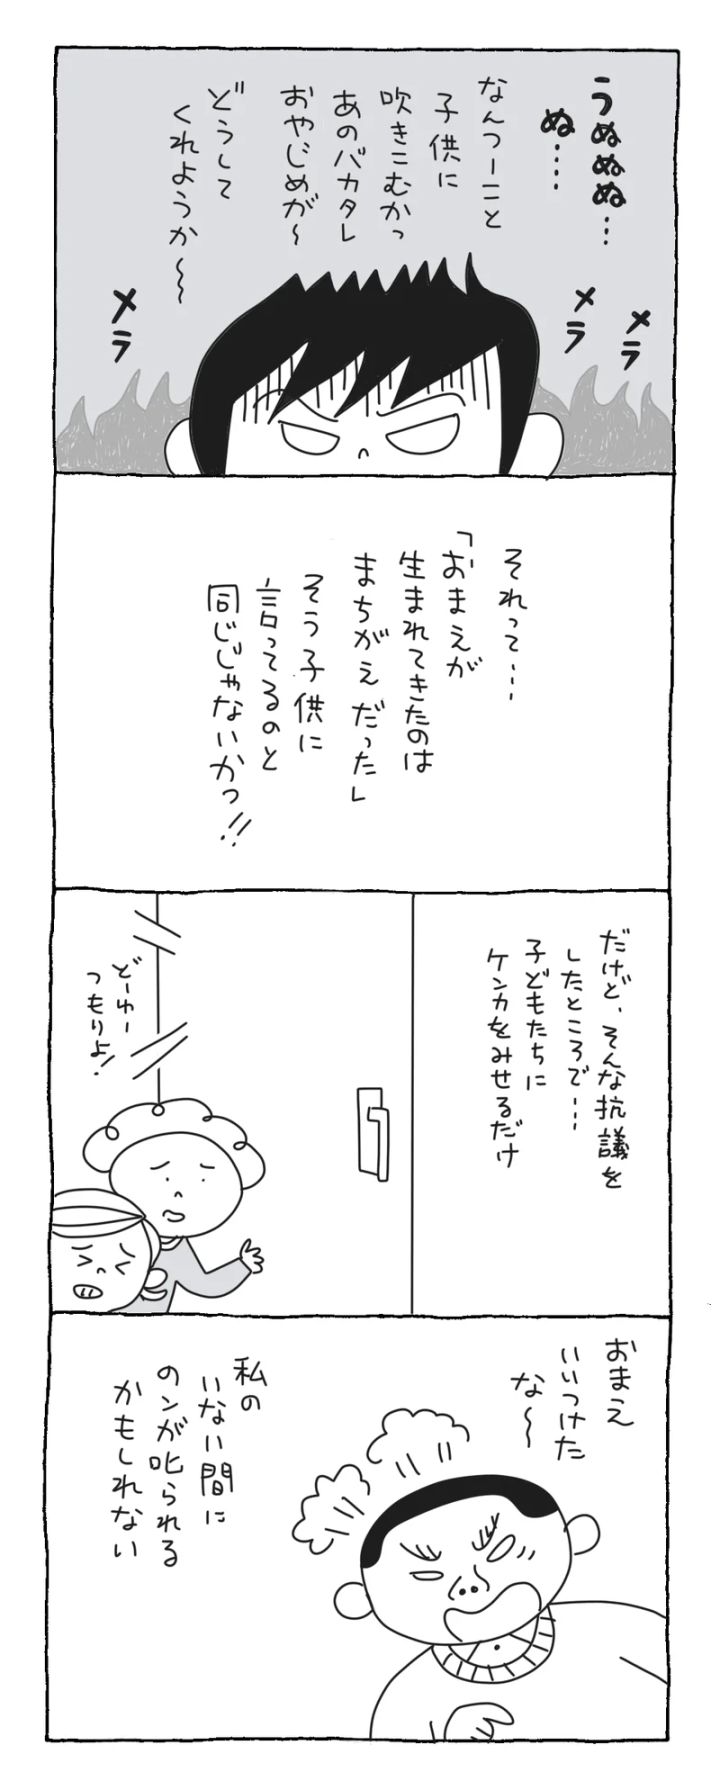 うぬぬぬ…
ぬ…
なんつーこと
子供に
吹きこむかっ
あのバカタレ
おやじめが〜
どうして
くれようか〜〜
メラ
メラ
メラ
それって…
「おまえが
生まれてきたのは
まちがえだった」
そう子供に
言ってるのと
同じじゃないかっ!!
だけど、そんな抗議を
したところで…
子どもたちに
ケンカをみせるだけ
どーゆー
つもりよ!
おまえ
いいつけた
な〜
私の
いない間に
のンが叱られる
かもしれない